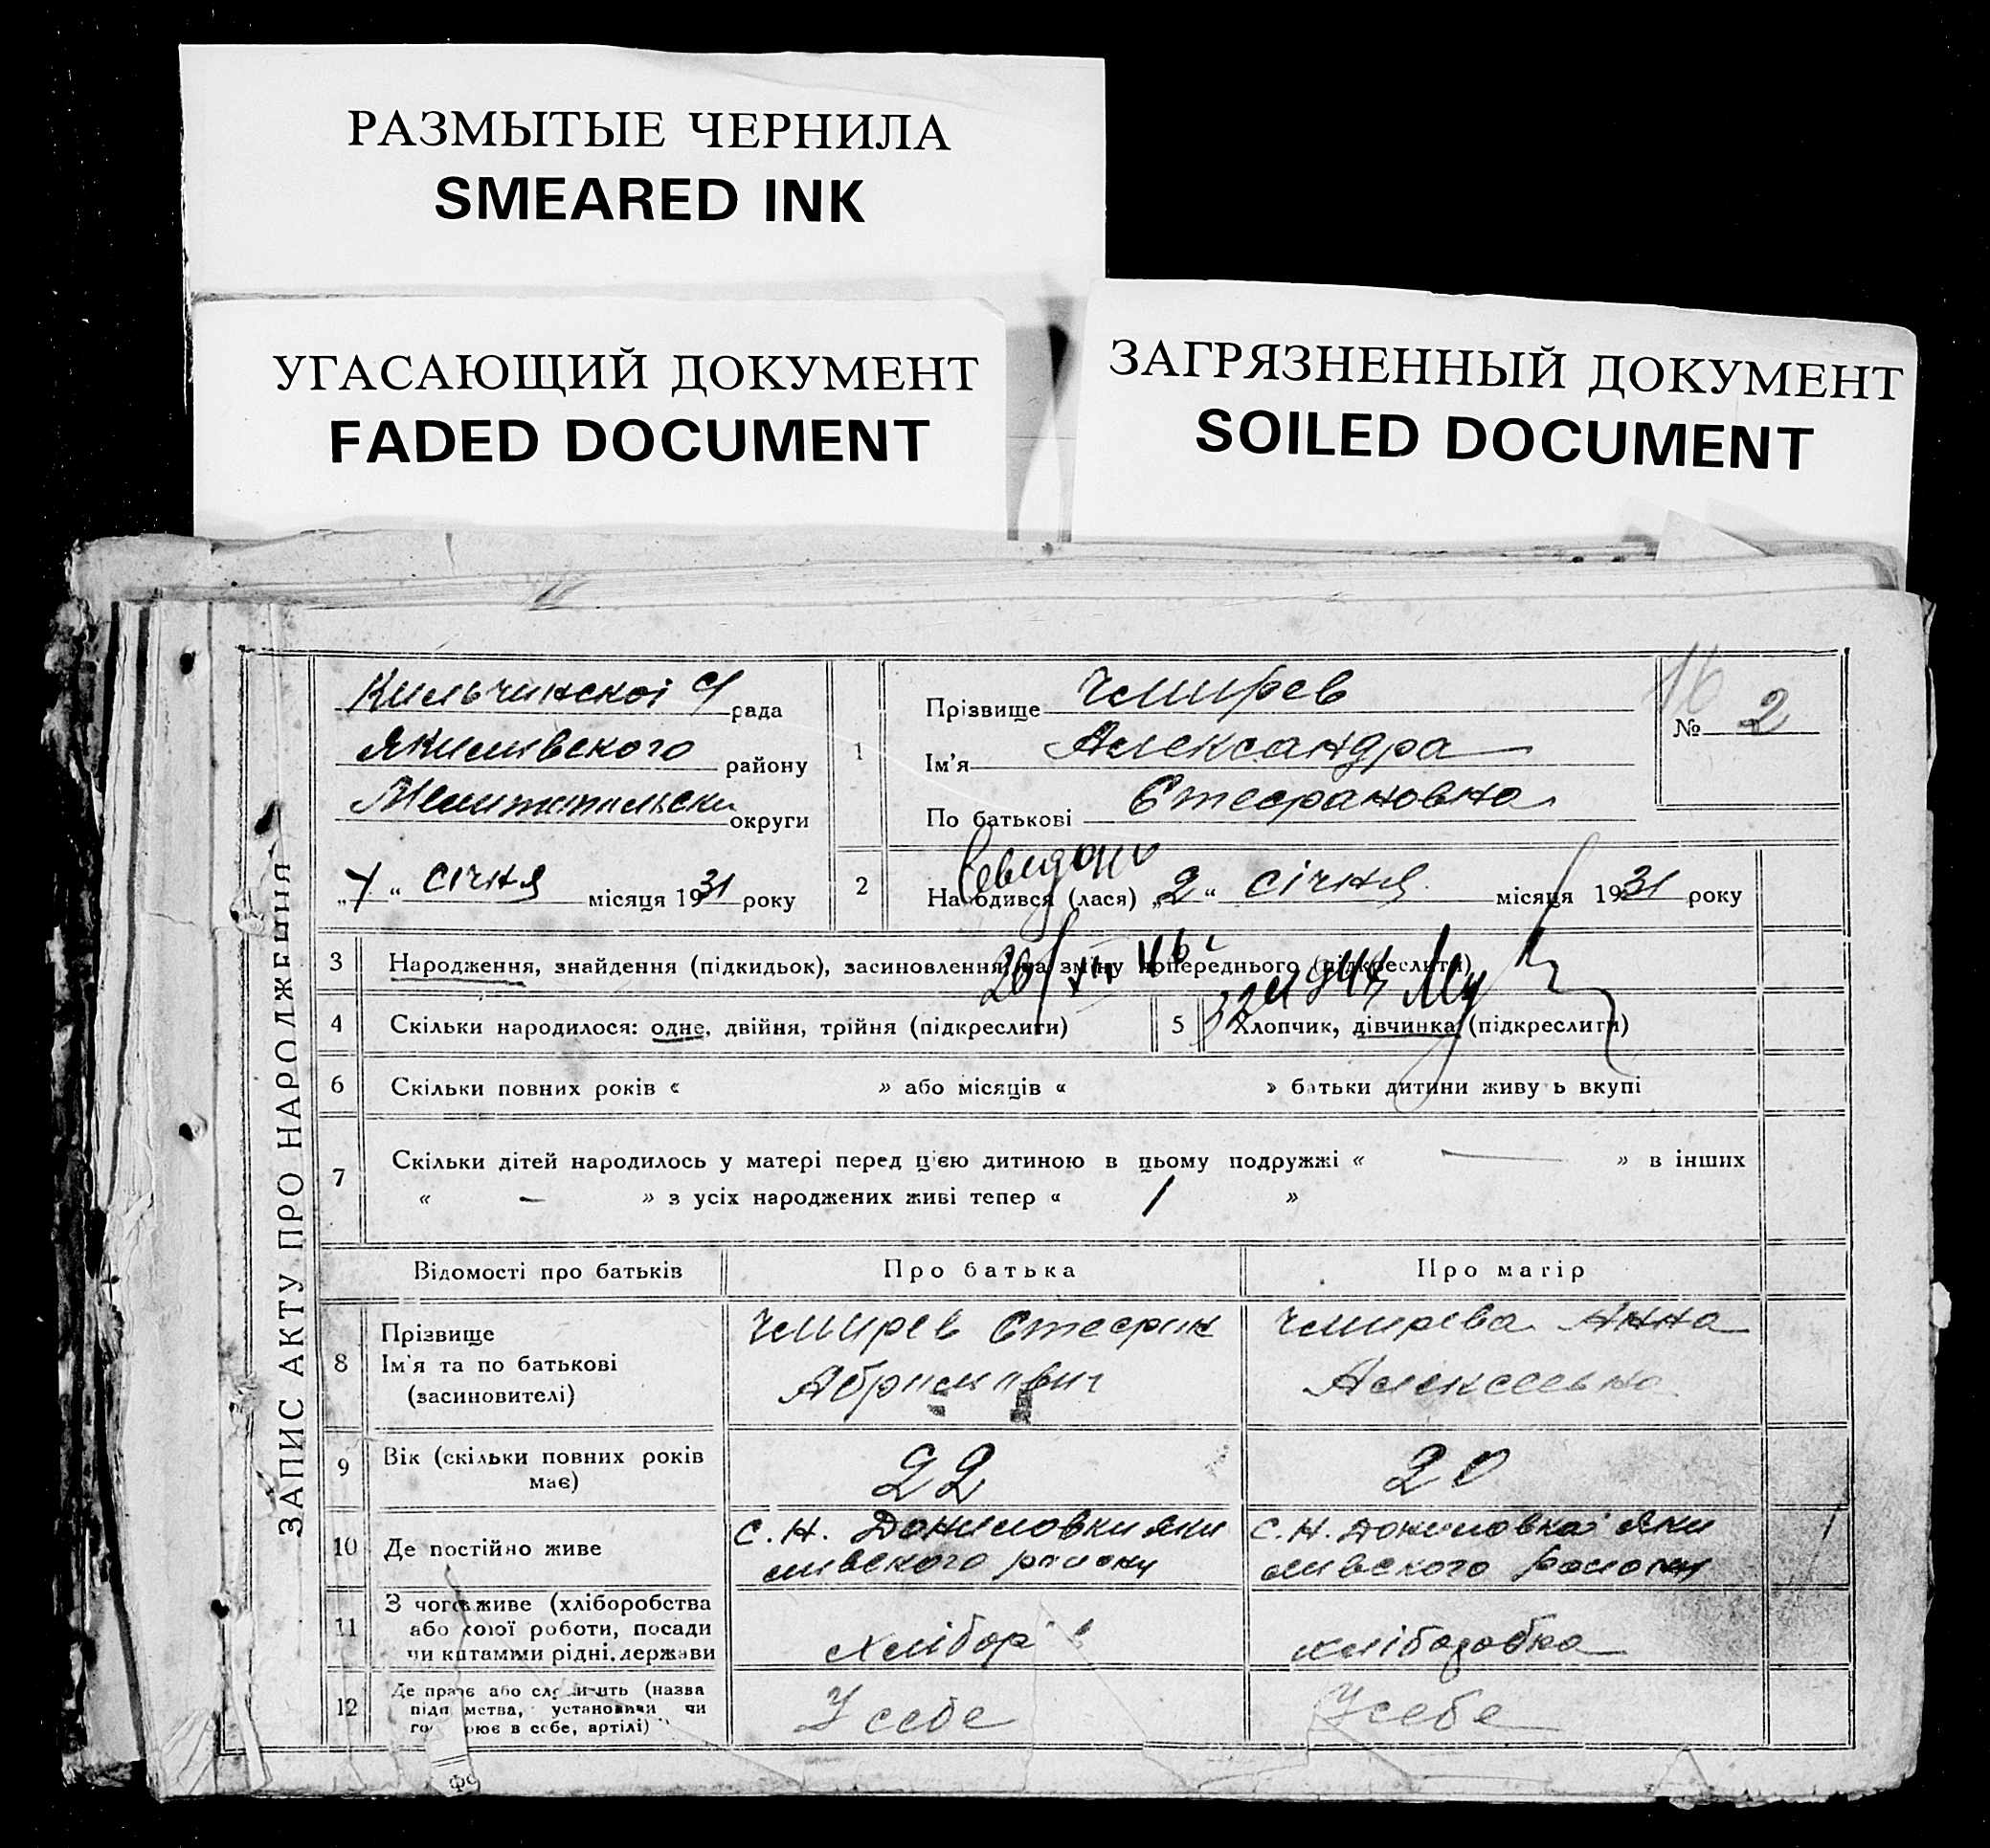 РАЗМЫТЫЕ ЧЕРНИЛА
SMEARED INK
УГАСАЮЩИЙ ДОКУМЕНТ
FADED DOCUMENT
ЗАГРЯЗНЕННЫЙ ДОКУМЕНТ
SOILED DOCUMENT
ЗАПИС АКТУ ПРО НАРОДЖЕННЯ
Кильчинскої с/рада
Якимивского району
округи
„7“ січня місяця 1931 року
1
Прізвище Чмирев
Ім'я Александра
По батькові Стефановна
16
№ 2
2 Народився (лася) „2“ січня місяця 1931 року
3 Народження, знайдення (підкидьок), засиновлення та зміну попереднього (підкреслити)
4 Скільки народилося: одне, двійня, трійня (підкреслити)
5 Хлопчик, дівчинка (підкреслити)
6 Скільки повних років « » або місяців « » батьки дитини живуть вкупі
7 Скільки дітей народилось у матері перед цією дитиною в цьому подружжі « — » в інших
« — » з усіх народжених живі тепер « 1 »
Відомості про батьків
Про батька
Про матір
8 Прізвище
Ім'я та по батькові
(засиновителі)
Чмирев Стефан
Абрамович
Чмирева Анна
Алексеевна
9 Вік (скільки повних років
має)
22
20
10 Де постійно живе
с. Н. Даниловки Яки
мивского району
с. Н. Даниловка Яки
мивского району
11 З чого живе (хліборобства
або якої роботи, посади
чи коштами рідні, держави
хлібор
хліборобка
12 Де працює або служить (назва
підприємства, установи чи
господарює в себе, артілі)
У себе
У себе